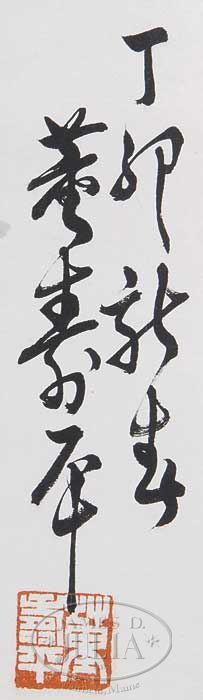 丁卯新春
董寿平
董寿平
JAMES D.
JULIA
Fairfield, Maine